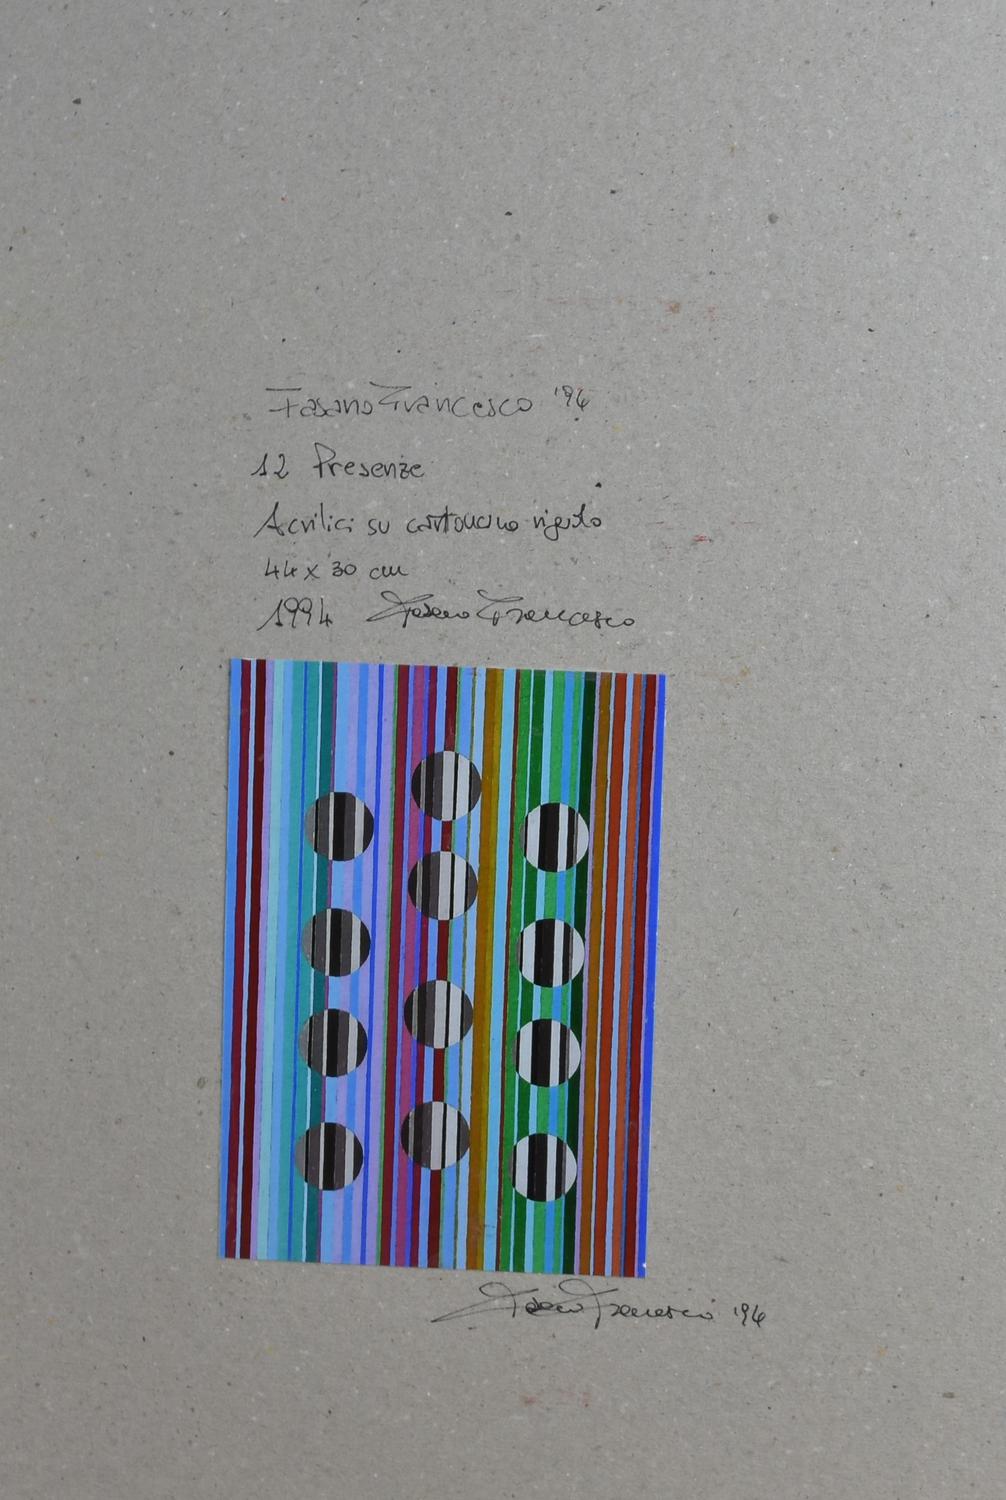 Fasano Francesco '94
12 Presenze
Acrilici su cartoncino rigido
44 x 30 cm
1994 Fasano Francesco
Fasano Francesco '94